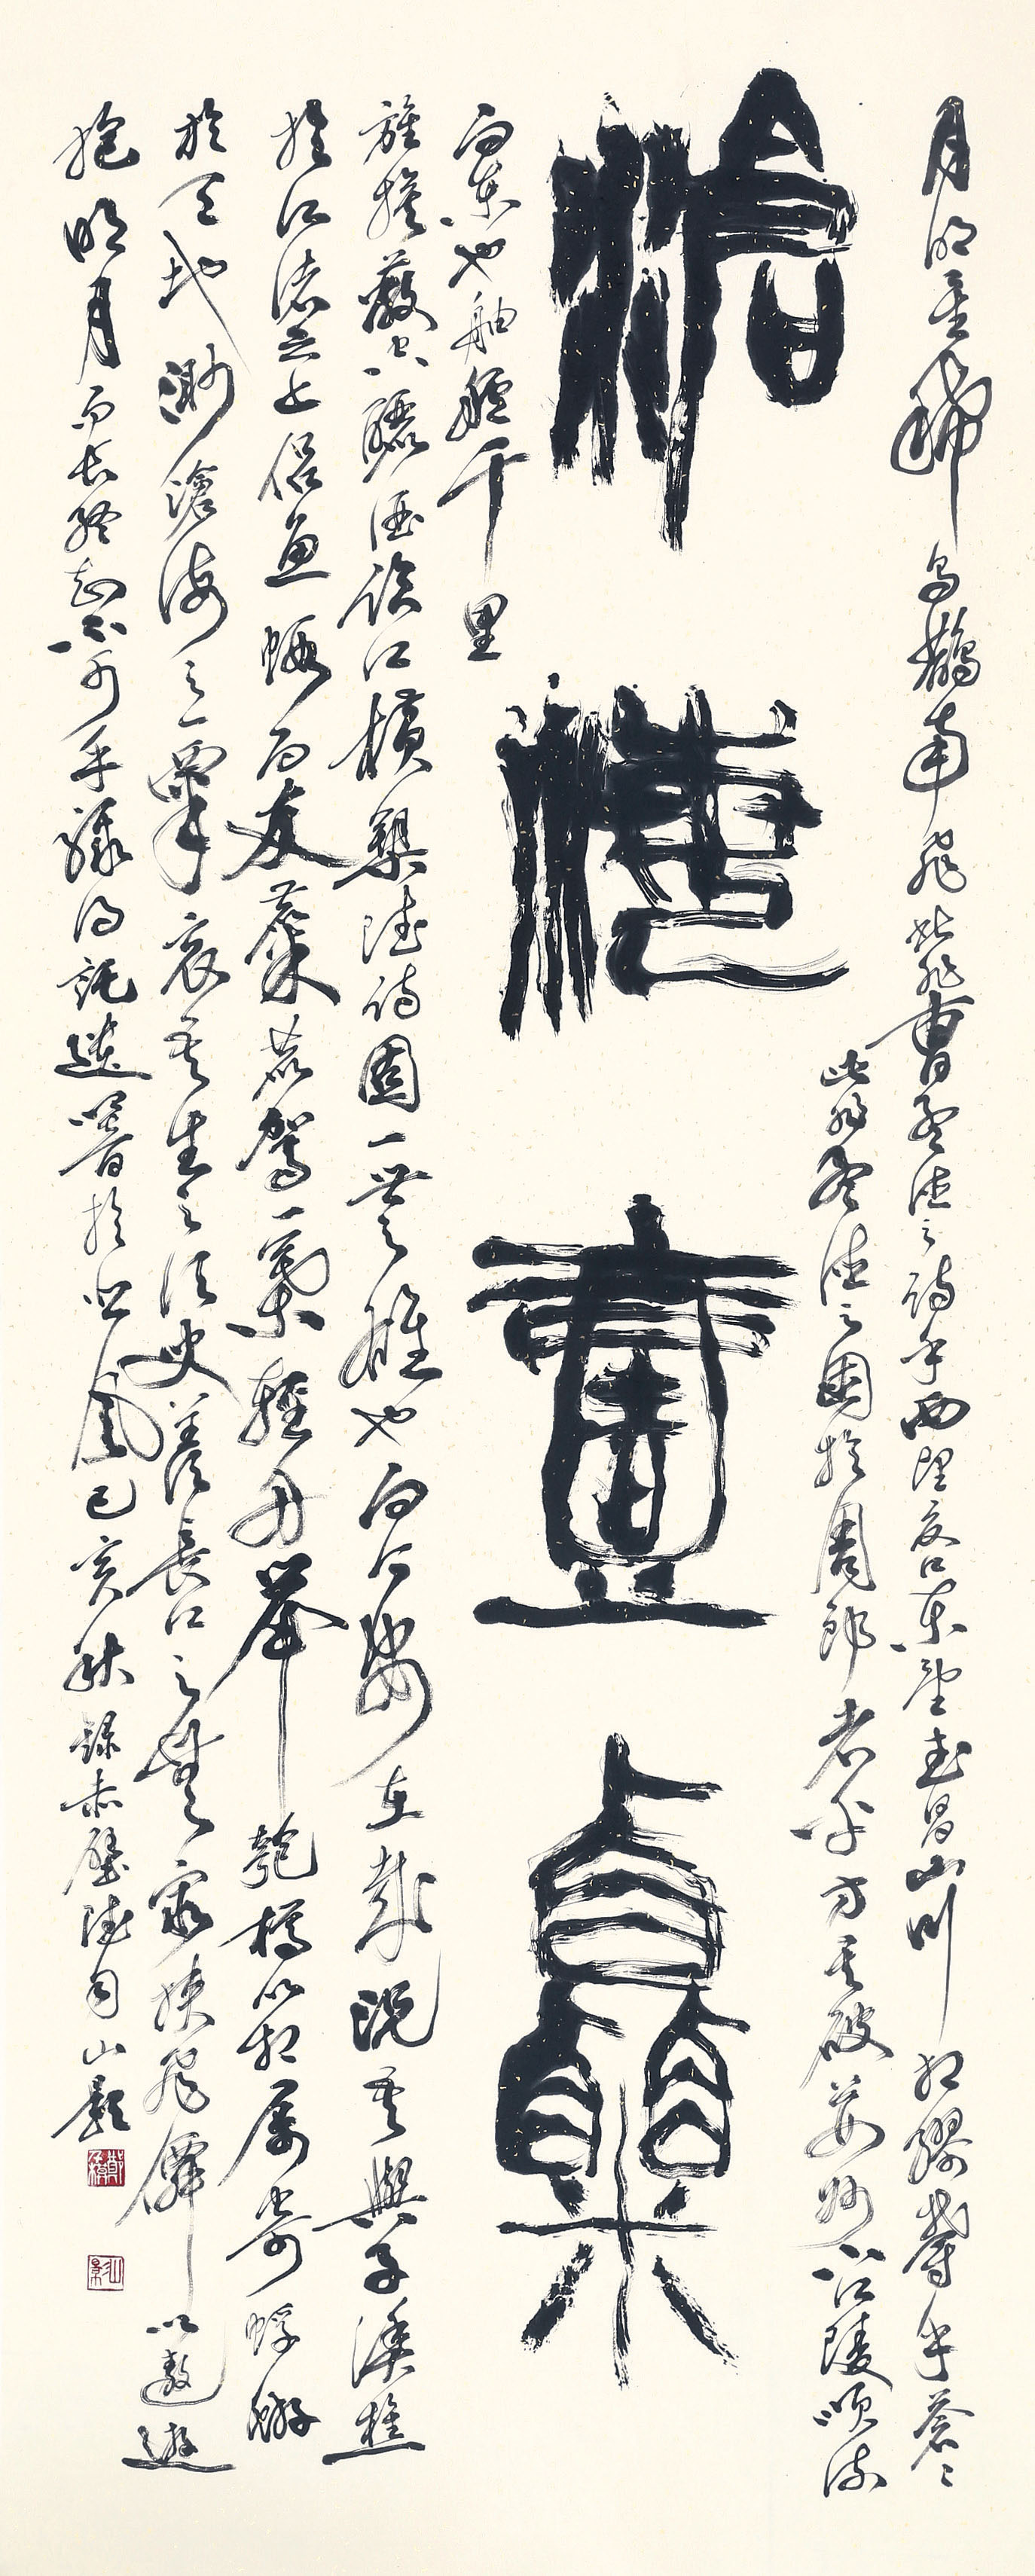 月明星稀烏鵲南飛此非曹孟德之詩乎西望夏口東望武昌山川相繆鬱乎蒼々
此非孟德之困於周郎者乎方其破荊州下江陵順流
滄海壹粟
而東也舳艫千里
旌旗蔽空釃酒臨江橫槊賦詩固一世之雄也而今安在哉況吾與子漁樵
於江渚之上侶魚蝦而友麋鹿駕一葉輕舟舉匏樽以相屬寄蜉蝣
於天地渺滄海之一粟哀吾生之須臾羨長江之無窮挾飛僊以遨遊
抱明月而長終知不可乎驟得託遺響於悲風己亥秋錄赤壁賦句山影
山影